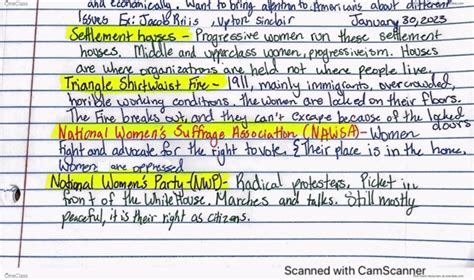 and economically. Want to bring attention to Americans about different
Issues Ex: Jacob Riis, Upton Sinclair January 30, 2023
Settlement houses - Progressive women run these settlement
houses. Middle and upperclass women, progressiveism. Houses
are where organizations are held not where people live.
Triangle Shirtwaist Fire - 1911, mainly immigrants, overcrowded,
horrible working conditions. the women are locked on their floors.
The Fire breaks out, and they can't excape because of the locked doors
National Women's Suffrage Association (NAWSA) - Women
fight and advocate for the right to vote. & Their place is in the home.
Women are oppressed
National Women's Party (NWP) - Radical protesters, Picket in
front of the White House. Marches and talks. Still mostly
peaceful, it is their right as citizens.
Scanned with CamScanner
OneClass